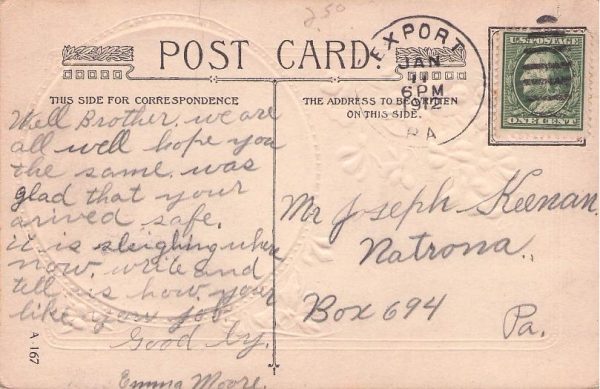 2.50
POST CARD.
EXPORT
JAN
11
6PM
1912
PA
U.S. POSTAGE
ONE CENT
THIS SIDE FOR CORRESPONDENCE
THE ADDRESS TO BE WRITTEN
ON THIS SIDE.
Well Brother. we are
all well hope you
the same. was
glad that your
arived safe.
it is sleighing
now. write and
tell us how your
like your job.
Good by.
Emma Moore.
Mr Joseph Keenan.
Natrona.
Box 694
Pa.
A-167